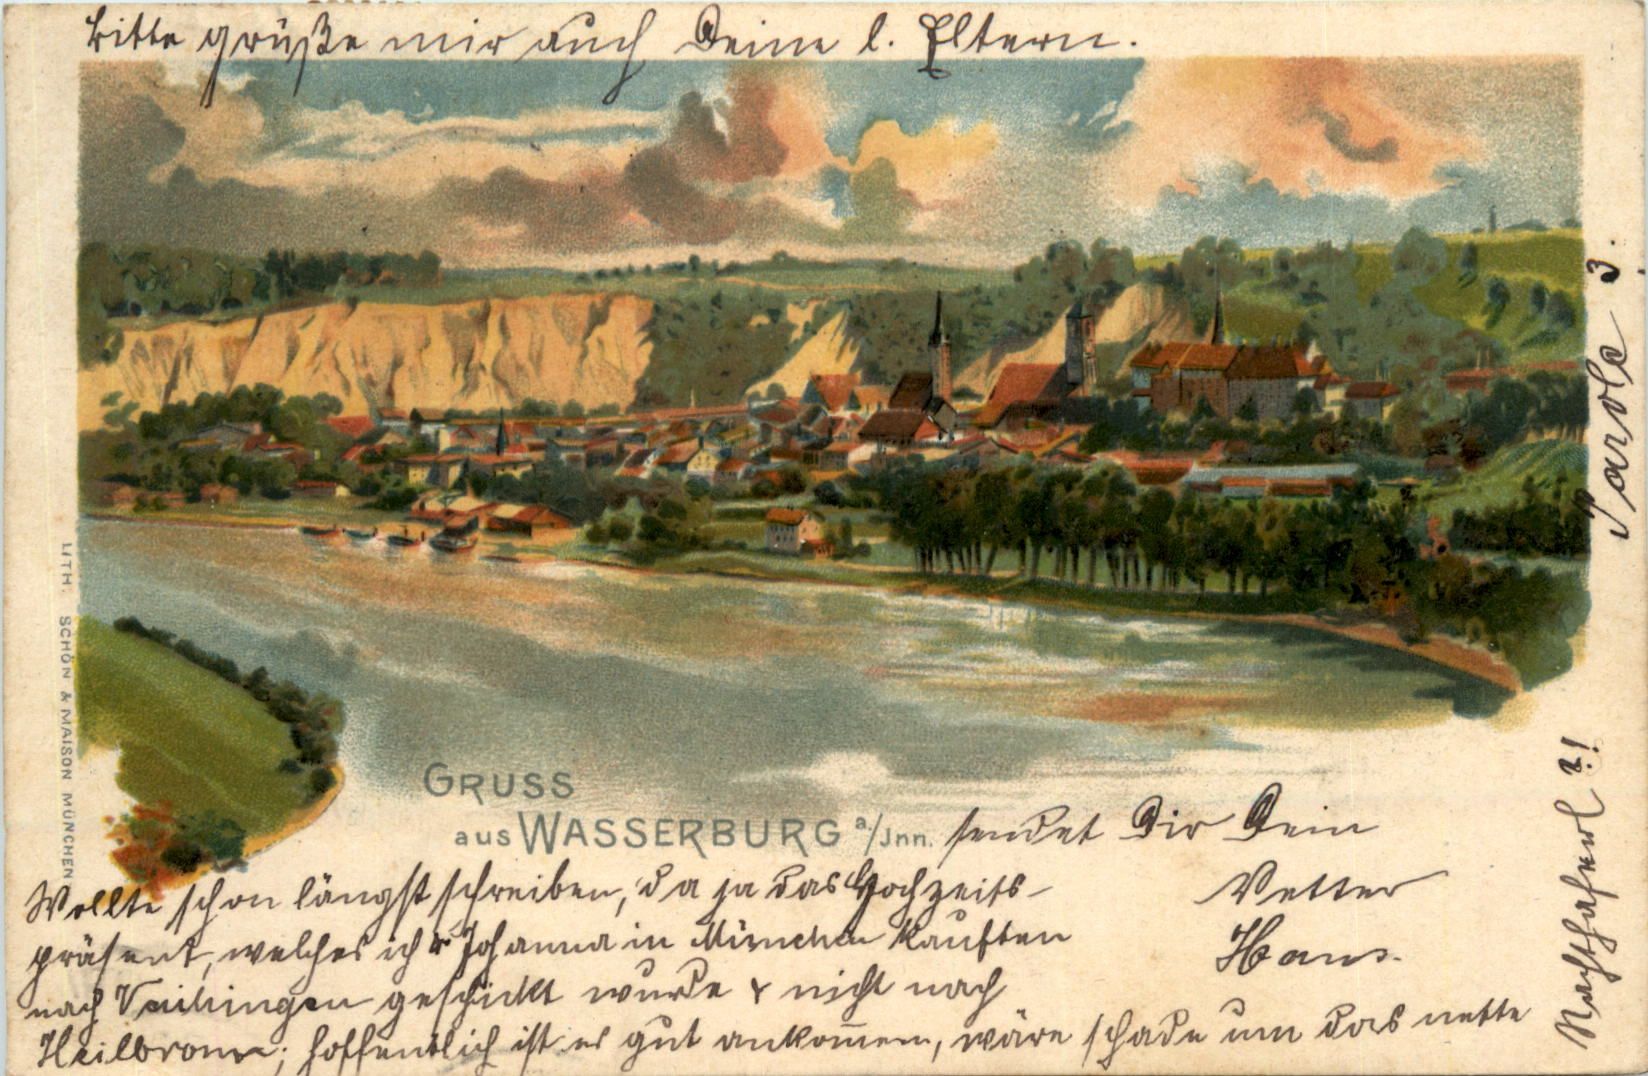 bitte grüße mir auch Deine l. Eltern.
GRUSS
aus WASSERBURG a/Jnn. sendet Dir Dein
Vetter
Hans.
Wollte schon längst schreiben, da ja das Hochzeits-
präsent, welches ich & Johanna in München kauften
nach Vaihingen geschickt wurde & nicht nach
Heilbronn; hoffentlich ist es gut ankom̄en, wäre schade um das nette
Parole 3.
LITH. SCHÖN & MAISON MÜNCHEN